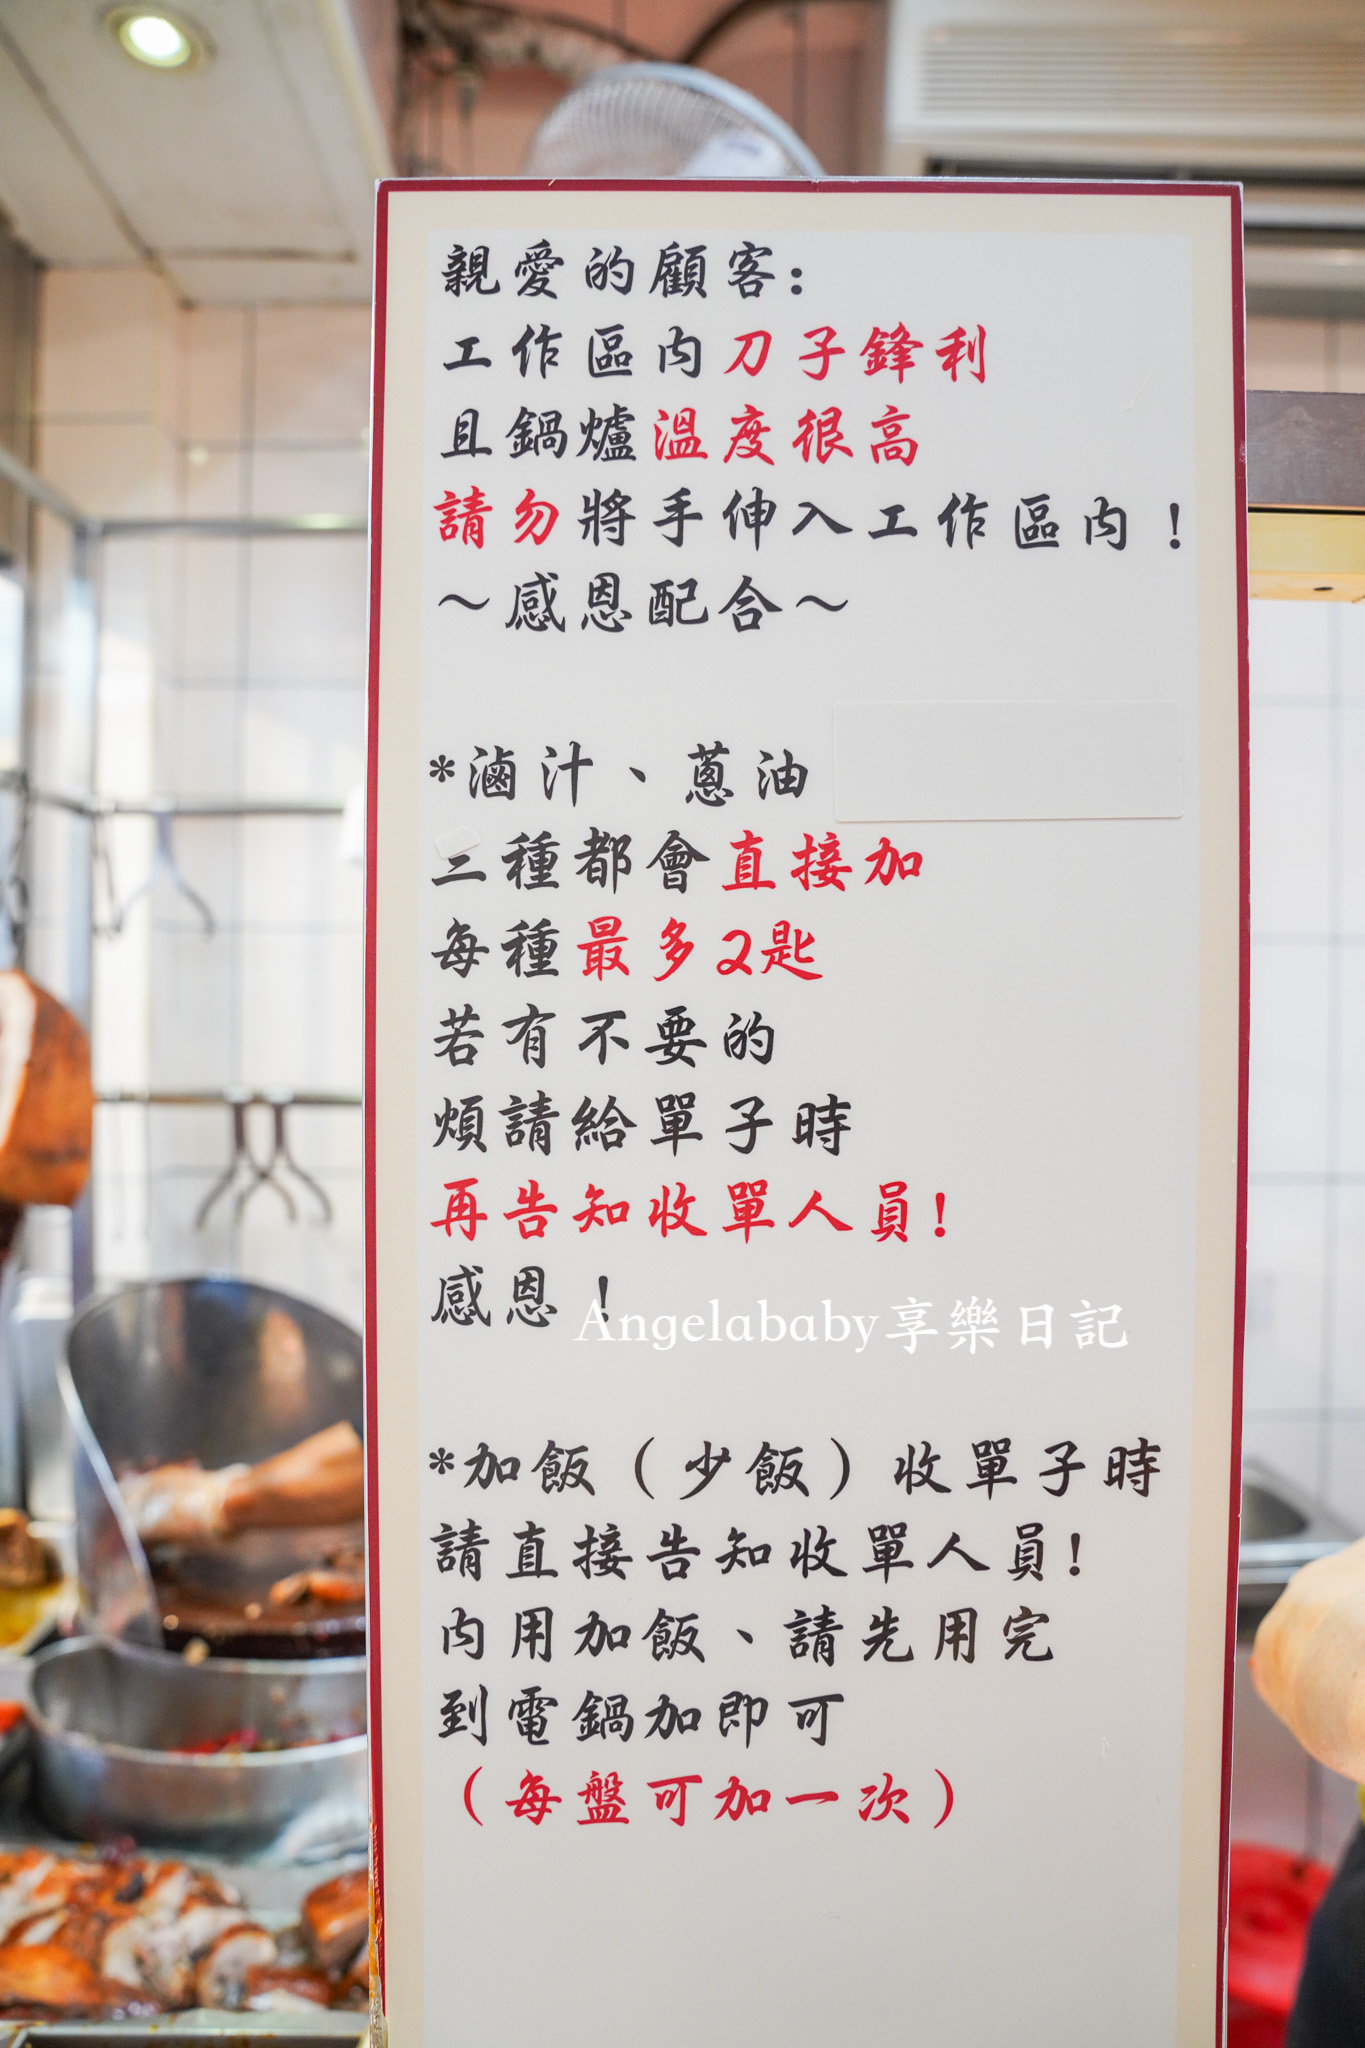 親愛的顧客：
工作區內刀子鋒利
且鍋爐溫度很高
請勿將手伸入工作區內！
～感恩配合～
*滷汁、蔥油
二種都會直接加
每種最多2匙
若有不要的
煩請給單子時
再告知收單人員！
感恩！
Angelababy享樂日記
*加飯（少飯）收單子時
請直接告知收單人員！
內用加飯、請先用完
到電鍋加即可
（每盤可加一次）